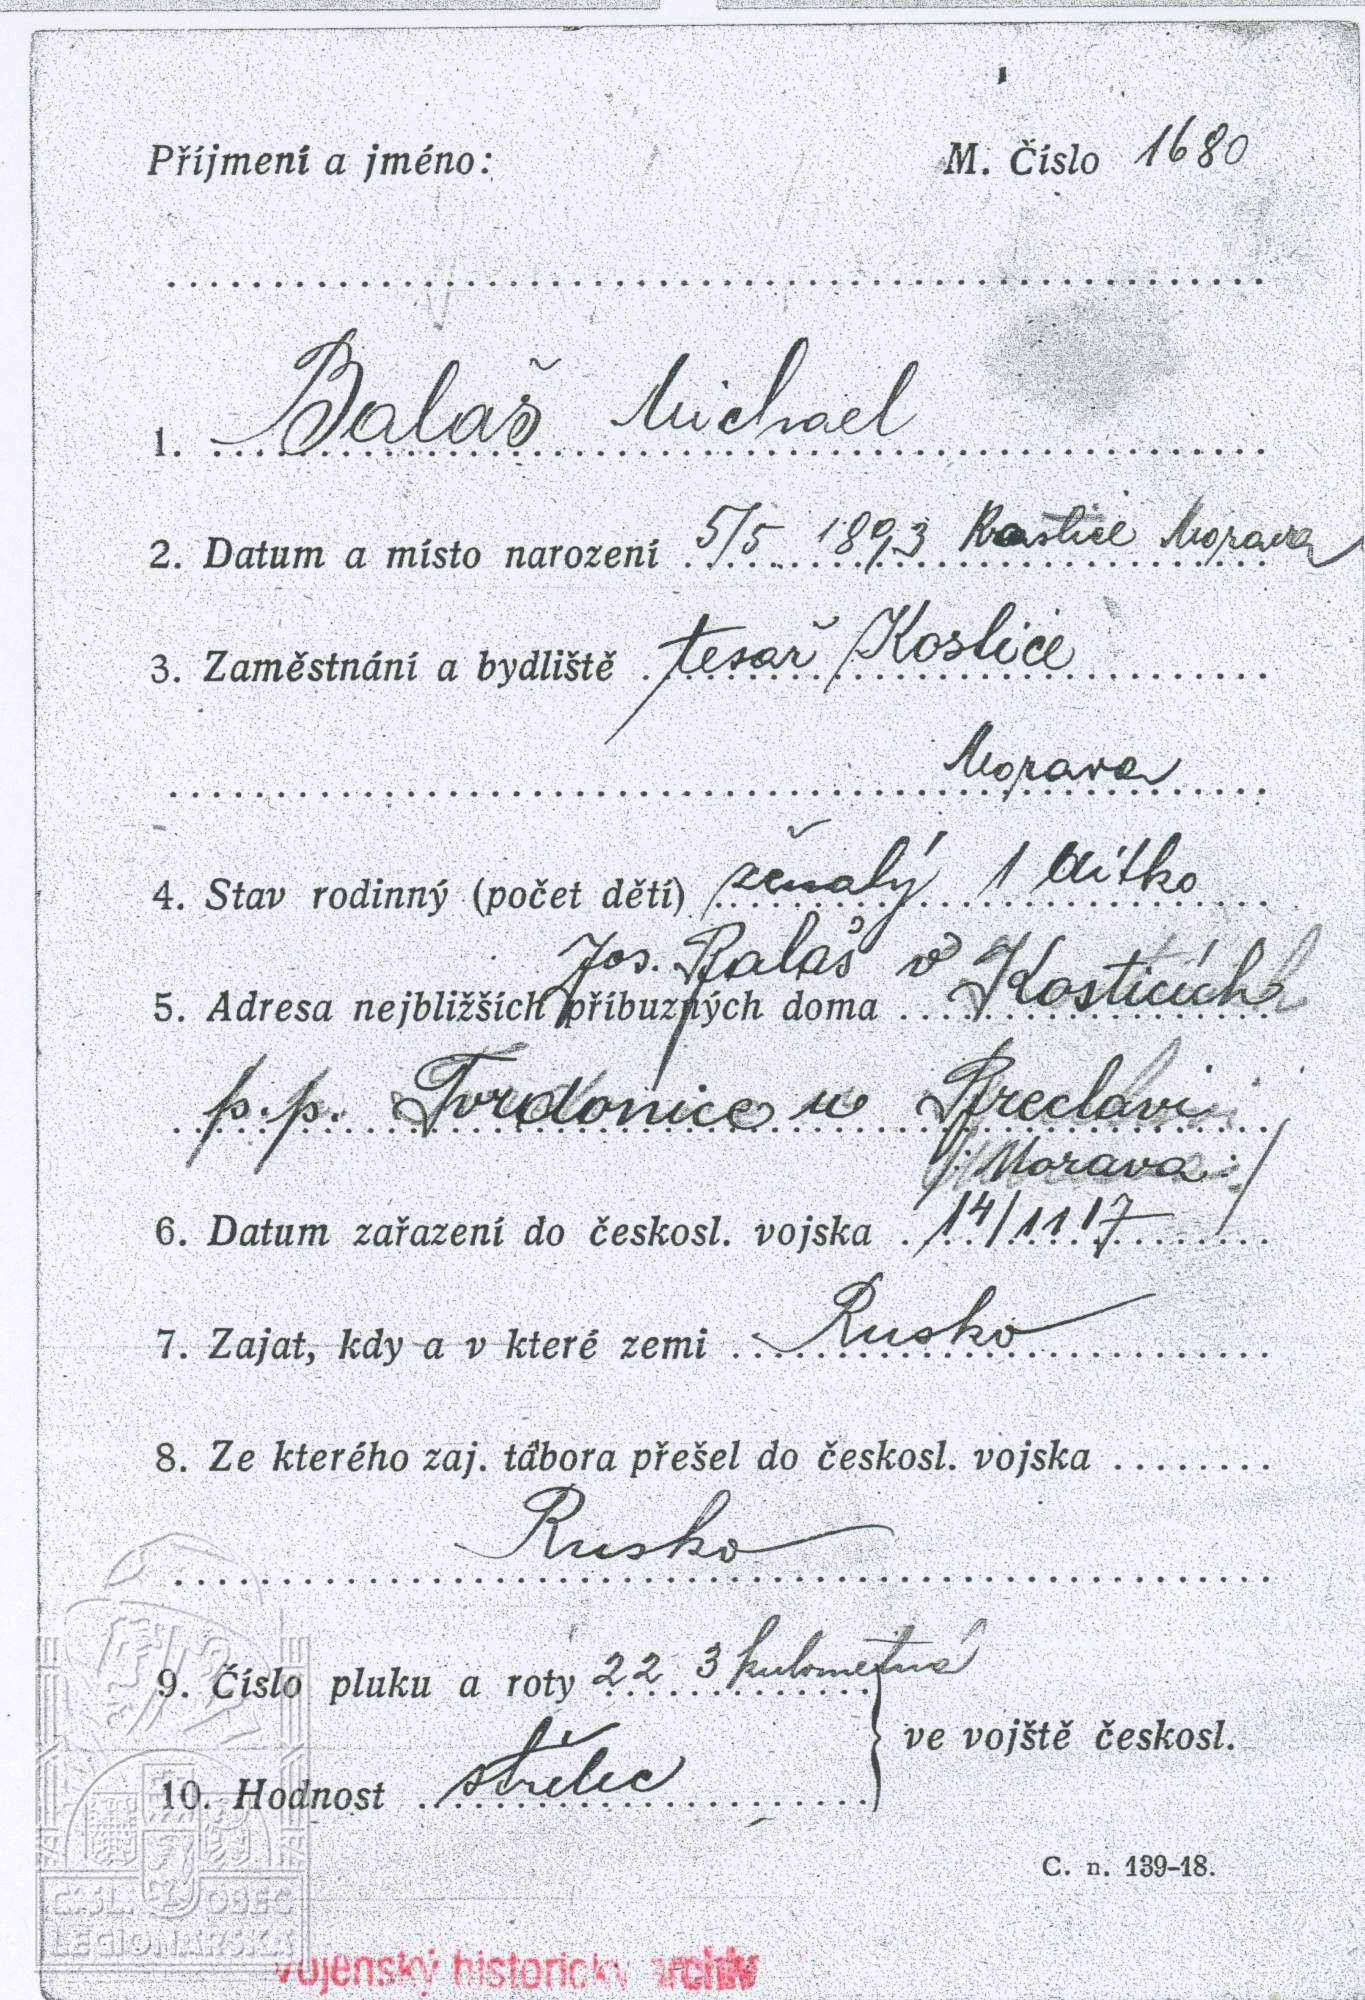 Příjmení a jméno: M. Číslo 1680
1. Balaš Michael
2. Datum a místo narození 5/5 1893 Kostice Morava
3. Zaměstnání a bydliště tesař Kostice
Morava
4. Stav rodinný (počet dětí) ženatý 1 dítko
Jos. Balaš v Kosticích
5. Adresa nejbližších příbuzných doma
p.p. Tvrdonice u Břeclavi
/: Morava :/
6. Datum zařazení do českosl. vojska 14/11 17
7. Zajat, kdy a v které zemi Rusko
8. Ze kterého zaj. tábora přešel do českosl. vojska
Rusko
9. Číslo pluku a roty 22 3 kulometná
ve vojště českosl.
10. Hodnost střelec
C. n. 139-18.
Č.SL. OBEC
LEGIONÁŘSKÁ
Vojenský historický archiv